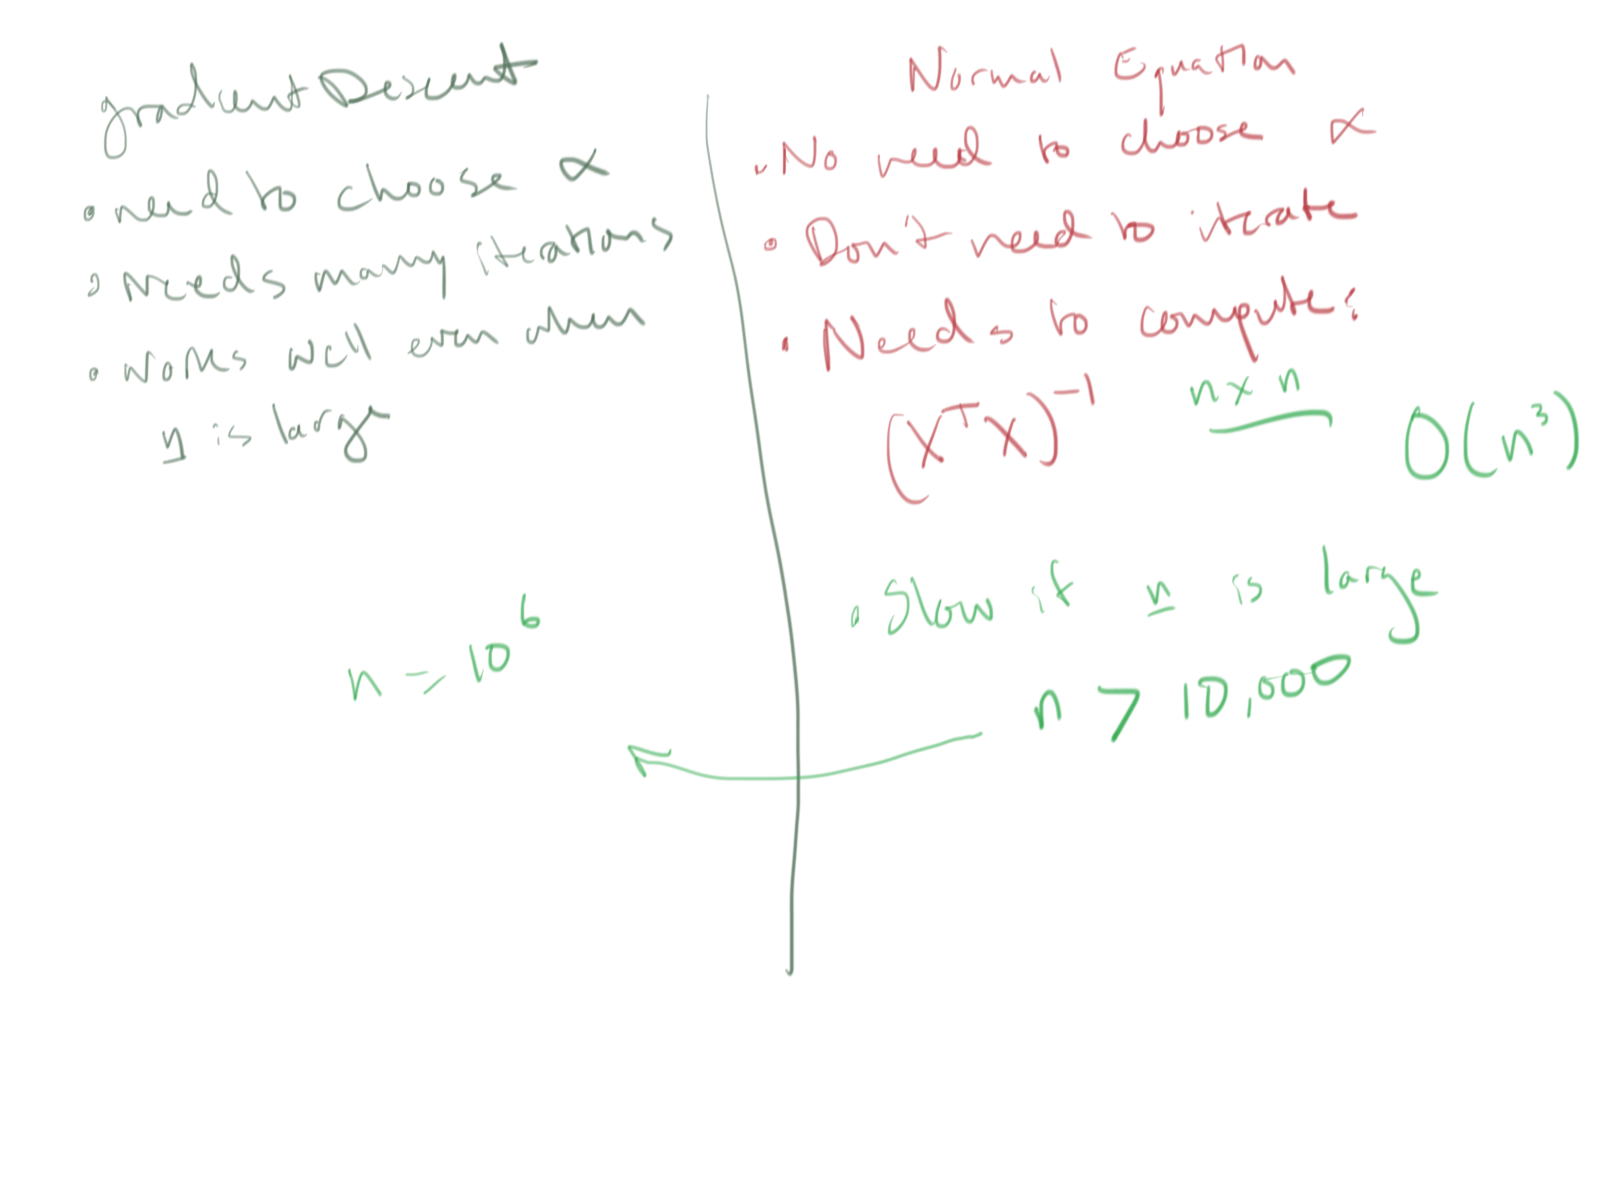 gradient Descent
• need to choose α
• Needs many iterations
• Works well even when
n is large
n = 10^6
Normal Equation
• No need to choose α
• Don't need to iterate
• Needs to compute:
(X^T X)^-1 n x n O(n^3)
• Slow if n is large
n > 10,000